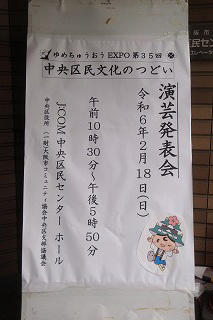 ゆめちゅうおうEXPO第35回
中央区民文化のつどい
演芸発表会
令和6年2月18日(日)
午前10時30分～午後5時50分
JCOM中央区民センターホール
中央区役所 (一財)大阪市コミュニティ協会中央区支部協議会